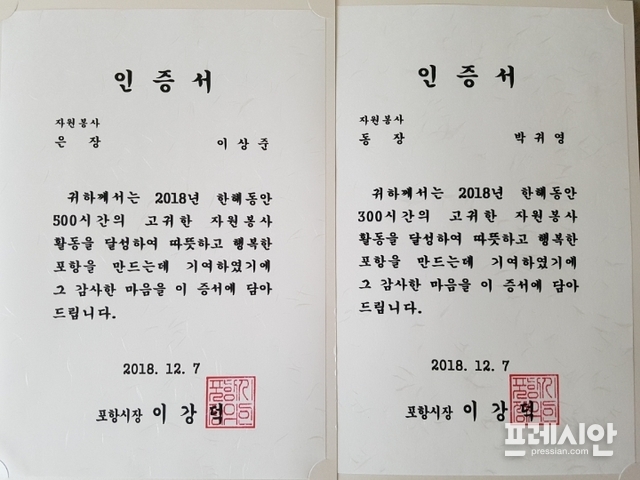 인 증 서
자원봉사
은 장 이상준
귀하께서는 2018년 한해동안
500시간의 고귀한 자원봉사
활동을 달성하여 따뜻하고 행복한
포항을 만드는데 기여하였기에
그 감사한 마음을 이 증서에 담아
드립니다.
2018. 12. 7
포항시장 이 강 덕
인 증 서
자원봉사
동 장 박귀영
귀하께서는 2018년 한해동안
300시간의 고귀한 자원봉사
활동을 달성하여 따뜻하고 행복한
포항을 만드는데 기여하였기에
그 감사한 마음을 이 증서에 담아
드립니다.
2018. 12. 7
포항시장 이 강 덕
프레시안
pressian.com